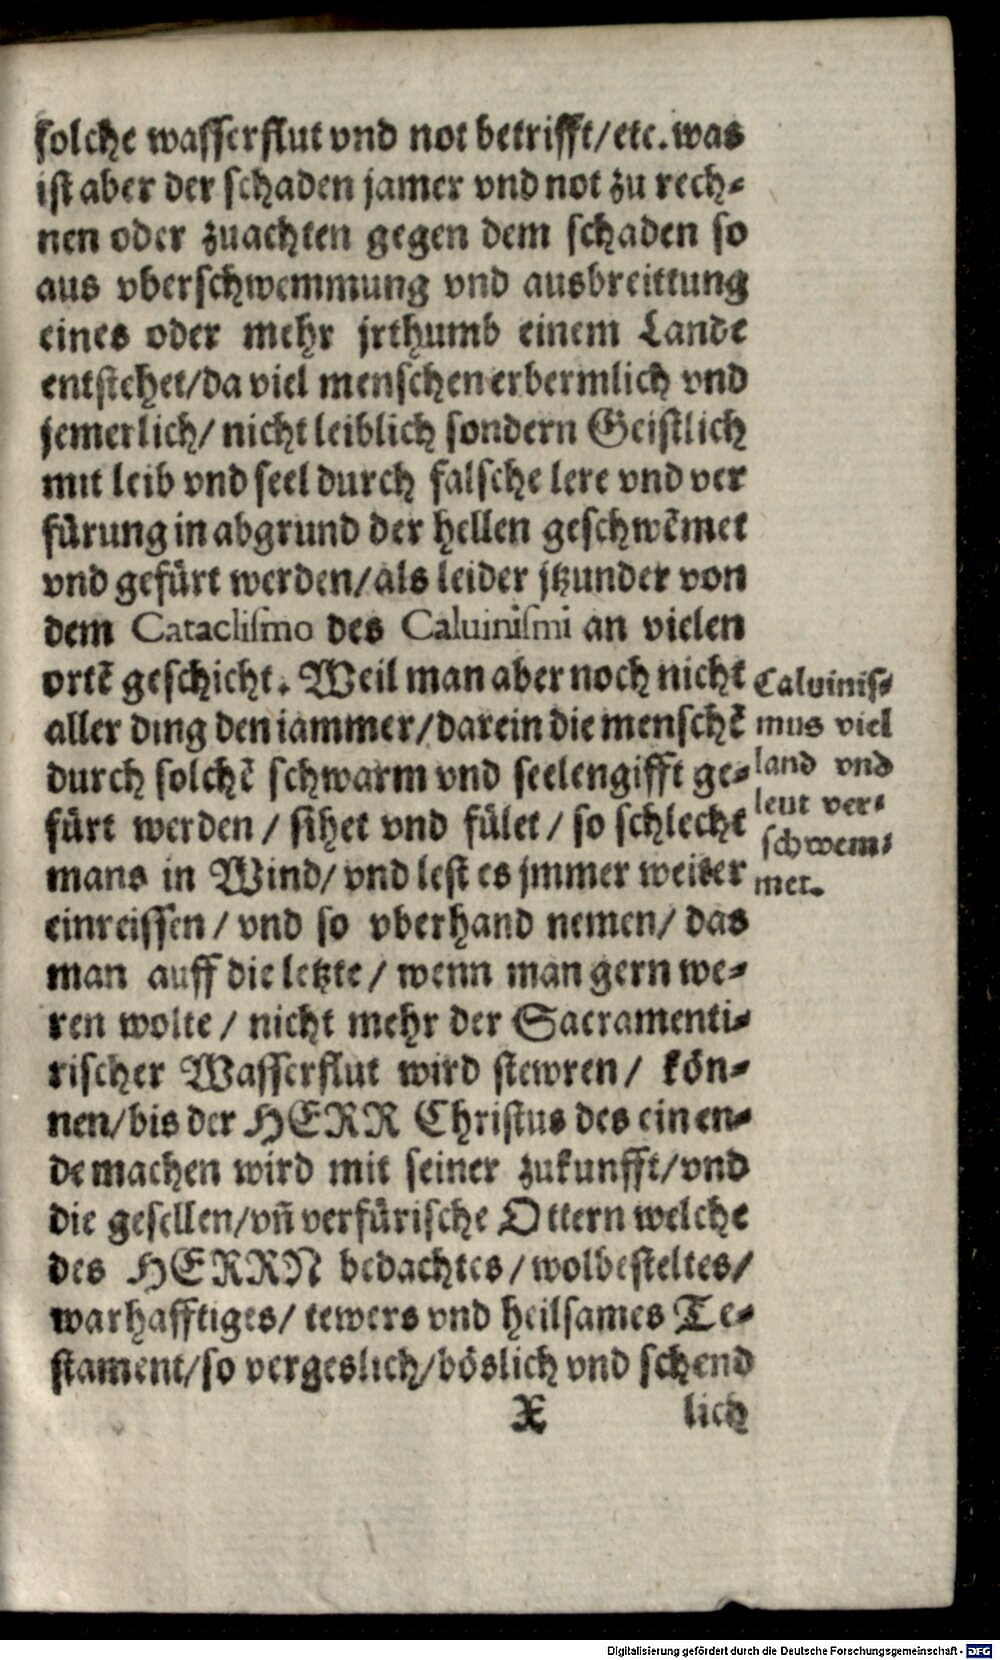 solche wasserflut vnd not betrifft/etc. was
ist aber der schaden jamer vnd not zu rech-
nen oder zuachten gegen dem schaden so
aus vberschwemmung vnd ausbreittung
eines oder mehr jrthumb einem Lande
entstehet/da viel menschen erbermlich vnd
jemerlich/ nicht leiblich sondern Geistlich
mit leib vnd seel durch falsche lere vnd ver
fürung in abgrund der hellen geschwẽmet
vnd gefürt werden/als leider jtzunder von
dem Cataclismo des Caluinismi an vielen
ortẽ geschicht. Weil man aber noch nicht
aller ding den iammer/darein die menschẽ
durch solchẽ schwarm vnd seelengifft ge-
fürt werden / sihet vnd fület / so schlecht
mans in Wind/ vnd lest es jmmer weiter
einreissen / vnd so vberhand nemen/ das
man auff die letzte / wenn man gern we-
ren wolte / nicht mehr der Sacramenti-
rischer Wasserflut wird stewren/ kön-
nen/bis der HERR Christus des ein en-
de machen wird mit seiner zukunfft/vnd
die gesellen/vñ verfürische Ottern welche
des HERRN bedachtes/wolbesteltes/
warhafftiges/ tewers vnd heilsames Te-
stament/so vergeslich/böslich vnd schend
X lich
Caluinis-
mus viel
land vnd
leut ver-
schwem-
met.
Digitalisierung gefördert durch die Deutsche Forschungsgemeinschaft - DFG